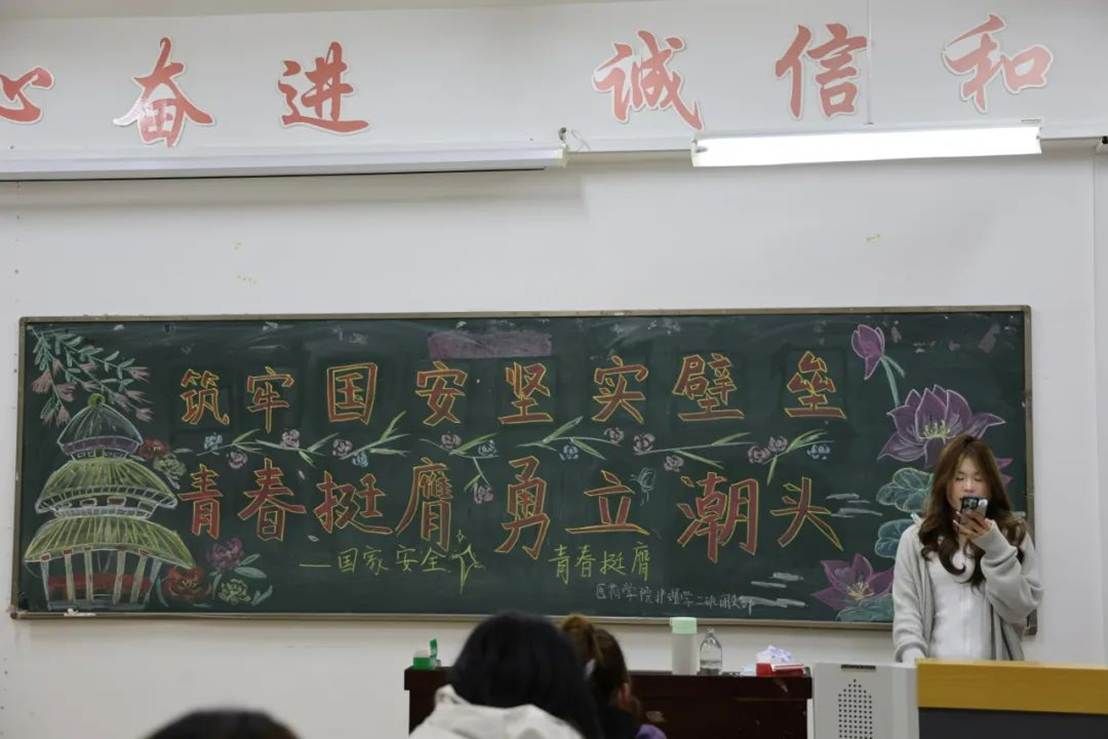 心奋进 诚信和
筑牢国安坚实壁垒
青春挺膺勇立潮头
—国家安全 青春挺膺
医药学院护理学二班团支部